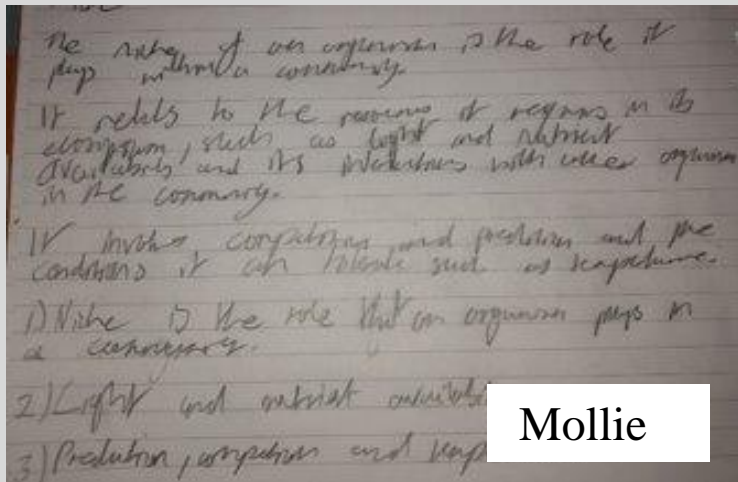 The niche of an organism is the role it
plays within a community.
It relates to the resources it requires in its
ecosystem, such as light and nutrient
availability and its interactions with other organisms
in the community.
It involves competition and predation and the
conditions it can tolerate such as temperature.
1) Niche is the role that an organism plays in
a community.
2) Light and nutrient
3) Predation, competition and
Mollie